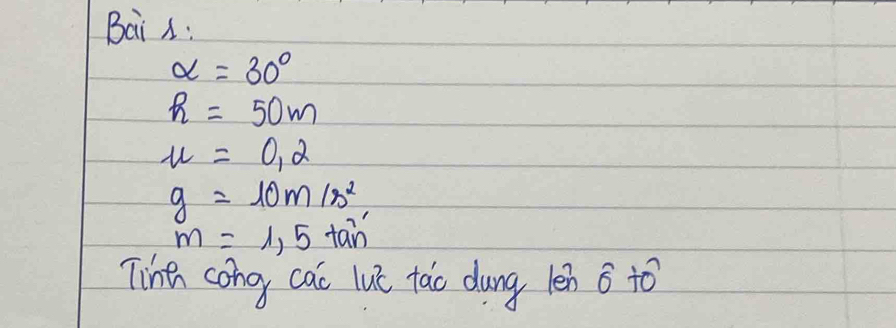 Bài 1:
α = 30°
h = 50m
μ = 0,2
g = 10m/s²
m = 1,5 tấn
Tính công các lực tác dụng lên ô tô